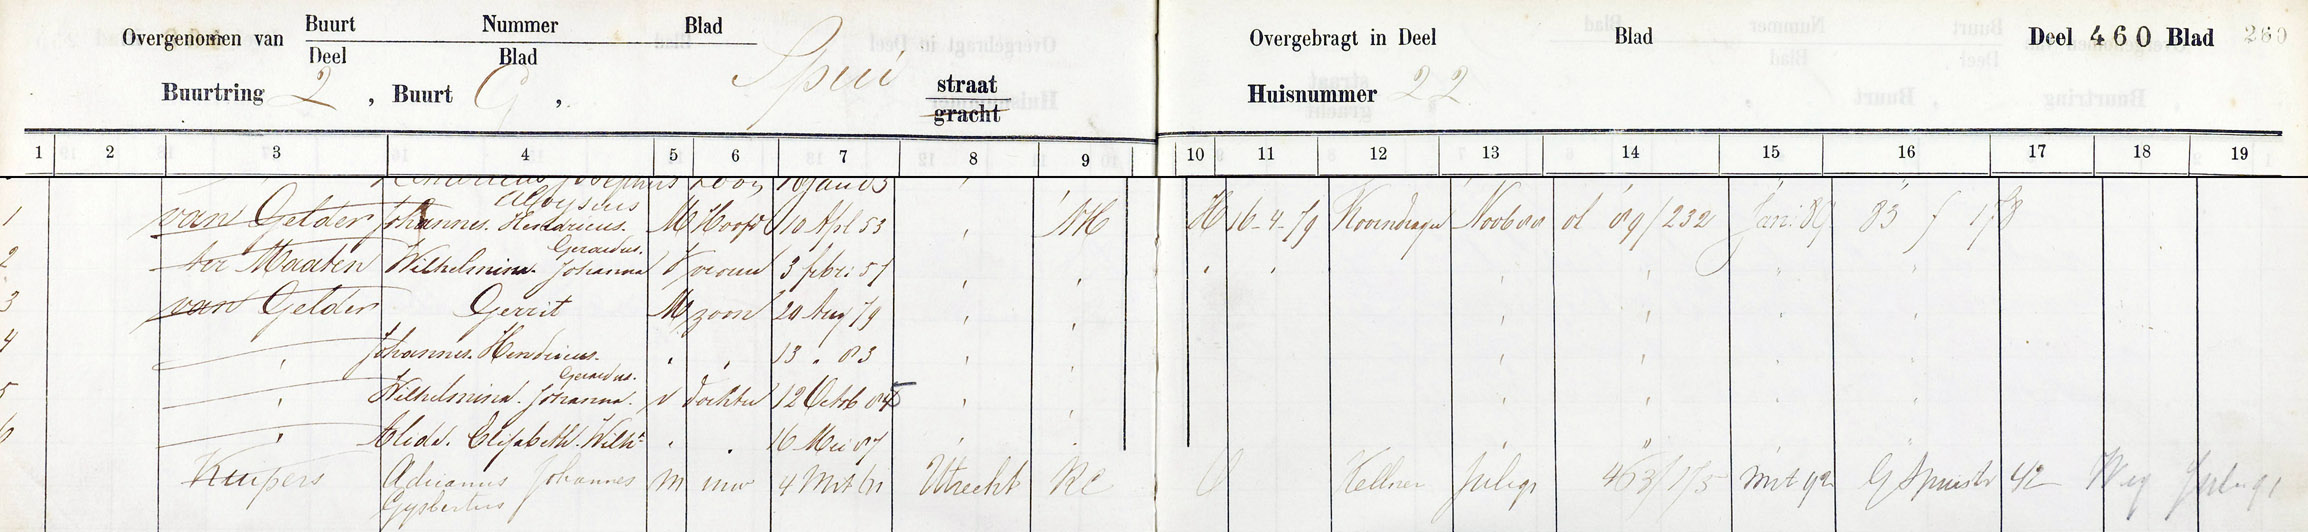 Overgenomen van Buurt Nummer Blad
Deel Blad
Buurtring 2, Buurt G, Spui straat
gracht
Overgebragt in Deel Blad Deel 460 Blad 260
Huisnummer 22
1 2 3 4 5 6 7 8 9 10 11 12 13 14 15 16 17 18 19
Aloysius
1 van Gelder Johannes Hendricus. M Hoofd 10 Apl 53 " NH H 16-4-79 Korendrager 89/232 Jan: 89 83 f 178
Gerardus.
2 ter Maaten Wilhelmina Johanna V vrouw 3 febr: 57
3 van Gelder Gerrit M zoon 20 Aug 79
4 " Johannes Hendricus. " " 13 " 83
Gerardus.
5 " Wilhelmina Johanna. v dochter 12 Octob 85
6 " Alida Elisabeth Wilh: " " 16 Mei 87
Kuipers Adrianus Johannes m inw 4 Mrt Utrecht RC O Kellner Juli 91 463/175 Mrt 92 G Spuistr 42 Weg
Gysbertus